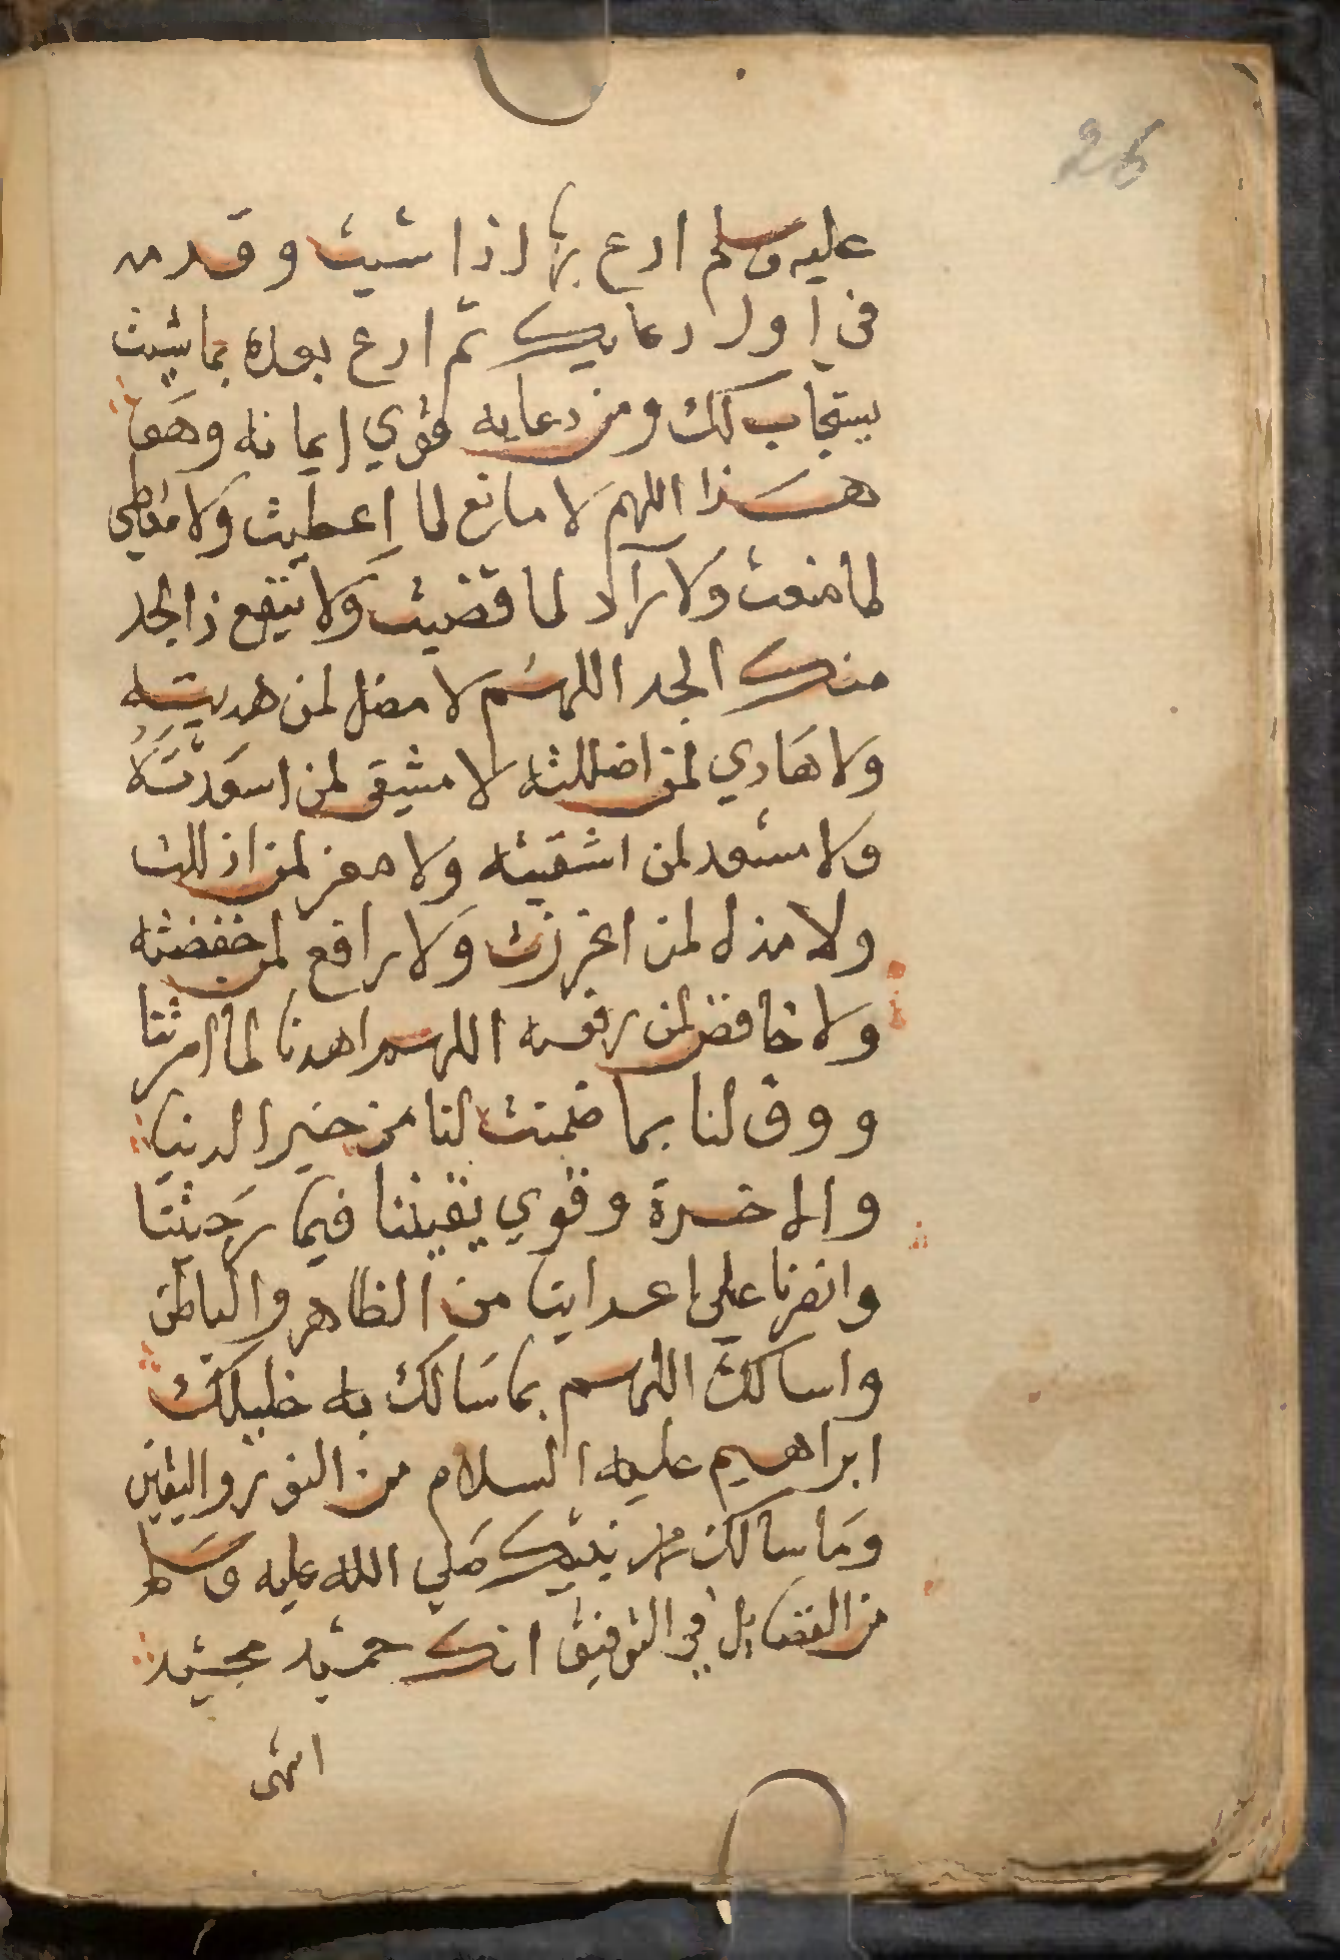 26
عليه وسلم ادع بها اذا شيت وقدمه
في اول دعايك ثم ادع بعده بما شيت
يستجاب لك ومن دعا به قوي ايمانه وهو
هذا اللهم لا مانع لما اعطيت ولا معطي
لما منعت ولا راد لما قضيت ولا ينفع ذا الجد
منك الجد اللهم لا مضل لمن هديته
ولا هادي لمن اضللته لا مشقي لمن اسعدته
ولا مسعد لمن اشقيته ولا معز لمن اذللت
ولا مذل لمن اعززت ولا رافع لمن خفضته
ولا خافض لمن رفعته اللهم اهدنا لما امرتنا
ووف لنا بما ضمنت لنا من خير الدنيا
والاخرة وقوي يقيننا فيما رجيتنا
وانصرنا على اعداينا من الظاهر والباطن
واسالك اللهم بما سالك به خليلك
ابراهيم عليه السلام من النور واليقين
وما سالك محمد نبيك صلي الله عليه وسلم
من الفضايل في التوفيق انك حميد مجيد
انتهى